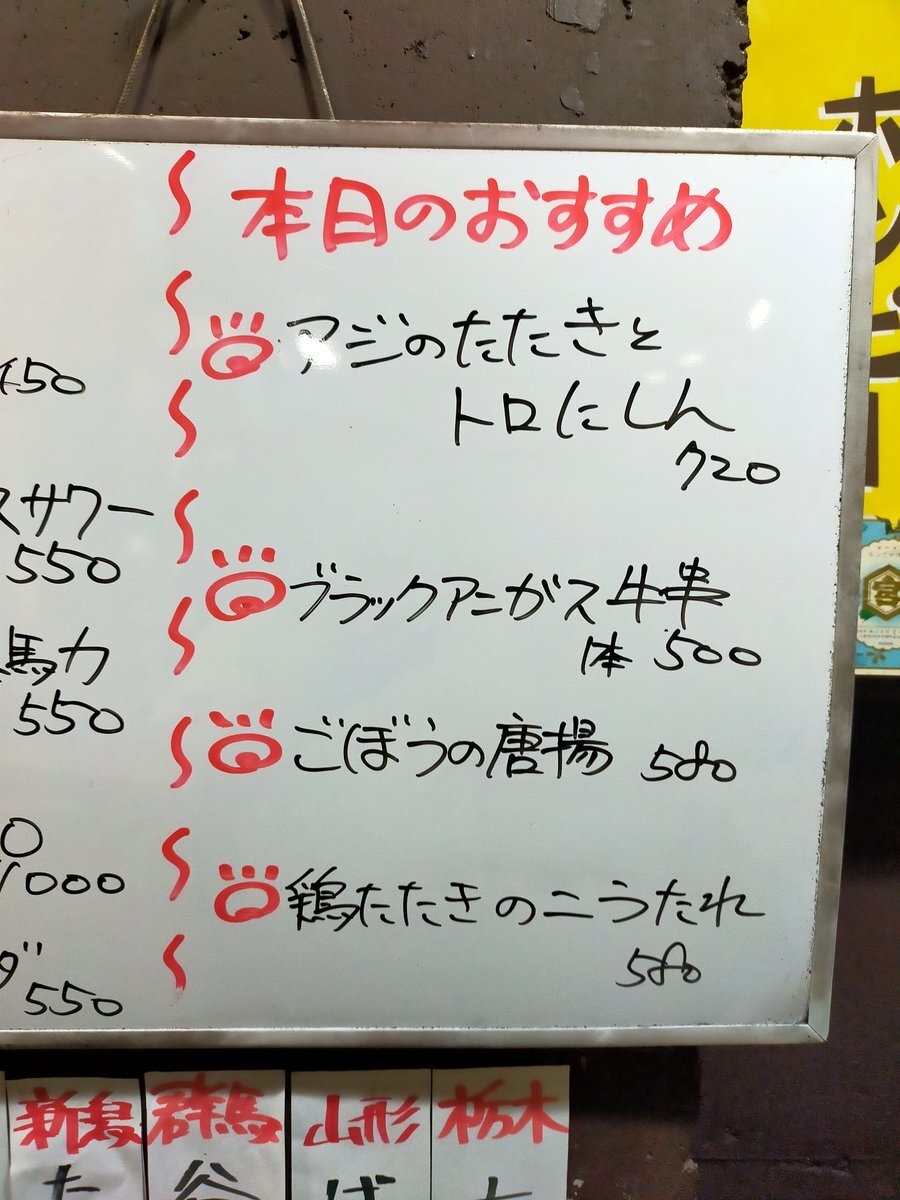 本日のおすすめ
アジのたたきと
トロにしん
720
ブラックアンガス牛串
1本 500
ごぼうの唐揚 580
鶏たたきのこうたれ
580
450
スサワー
550
馬力
550
000
ダ
550
新潟
群馬
山形
栃木
ホッピー
宮